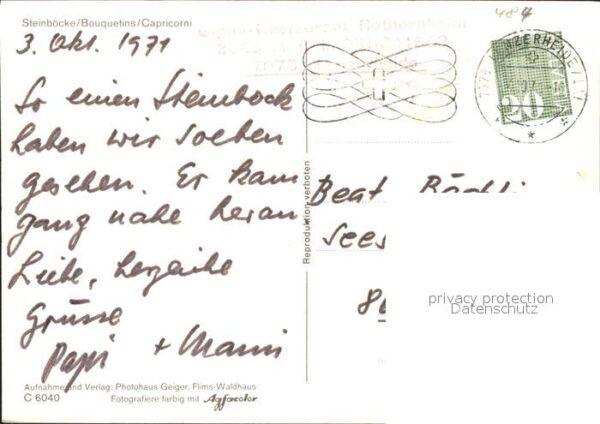 Steinböcke/Bouquetins/Capricorni
484
3. Okt. 1971
Gipfel-Restaurant Rothornhütte
7078 LENZERHEIDE/LAI
20
So einen Steinbock
haben wir soeben
gesehen. Er kam
ganz nahe heran
Liebe, herzliche
Grüsse
Papi + Mami
Reproduktion verboten
Beat
Sees
8
privacy protection
Datenschutz
Aufnahme und Verlag: Photohaus Geiger, Flims-Waldhaus
C 6040
Fotografiere farbig mit Agfacolor